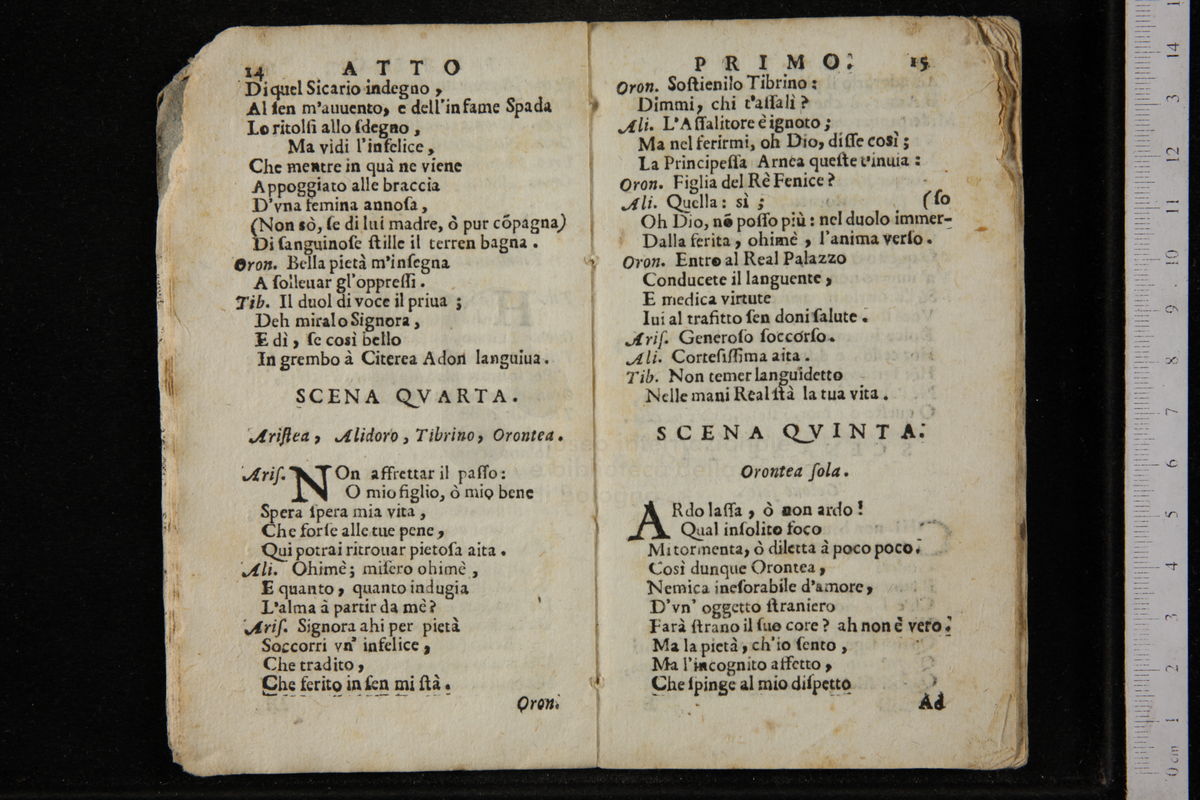 14 ATTO
Di quel Sicario indegno,
Al ſen m'auuento, e dell'infame Spada
Lo ritolſi allo ſdegno,
Ma vidi l'infelice,
Che mentre in quà ne viene
Appoggiato alle braccia
D'vna femina annoſa,
(Non sò, ſe di lui madre, ò pur cõpagna)
Di ſanguinoſe ſtille il terren bagna.
Oron. Bella pietà m'inſegna
A ſolleuar gl'oppreſſi.
Tib. Il duol di voce il priua;
Deh miralo Signora,
E dì, ſe così bello
In grembo à Citerea Adon languiua.
SCENA QVARTA.
Ariſtea, Alidoro, Tibrino, Orontea.
Ariſ. NOn affrettar il paſſo:
O mio figlio, ò mio bene
Spera ſpera mia vita,
Che forſe alle tue pene,
Qui potrai ritrouar pietoſa aita.
Ali. Ohimè; miſero ohimè,
E quanto, quanto indugia
L'alma à partir da mè?
Ariſ. Signora ahi per pietà
Soccorri vn' infelice,
Che tradito,
Che ferito in ſen mi ſtà.
Oron.
PRIMO. 15
Oron. Soſtienilo Tibrino:
Dimmi, chi t'aſſalì?
Ali. L'Aſſalitore è ignoto;
Ma nel ferirmi, oh Dio, diſſe così;
La Principeſſa Arnea queſte t'inuia:
Oron. Figlia del Rè Fenice?
Ali. Quella: sì; (ſo
Oh Dio, nõ poſſo più: nel duolo immer-
Dalla ferita, ohimè, l'anima verſo.
Oron. Entro al Real Palazzo
Conducete il languente,
E medica virtute
Iui al trafitto ſen doni ſalute.
Ariſ. Generoſo ſoccorſo.
Ali. Corteſiſſima aita.
Tib. Non temer languidetto
Nelle mani Real ſtà la tua vita.
SCENA QVINTA.
Orontea ſola.
ARdo laſſa, ò non ardo!
Qual inſolito foco
Mi tormenta, ò diletta à poco poco.
Così dunque Orontea,
Nemica ineſorabile d'amore,
D'vn' oggetto ſtraniero
Farà ſtrano il ſuo core? ah non è vero.
Ma la pietà, ch'io ſento,
Ma l'incognito affetto,
Che ſpinge al mio diſpetto
Ad